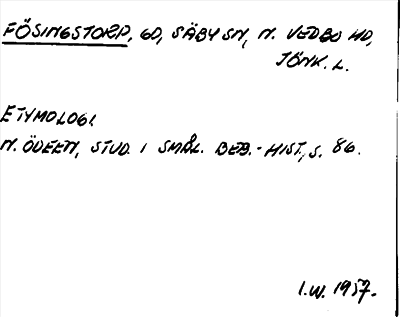 FÖSINGSTORP, GD, SÄBY SN, N. VEDBO HD,
JÖNK. L.
ETYMOLOGI
N. ÖDEEN, STUD. I SMÅL. BEB.-HIST., S. 86.
I.W. 1957.